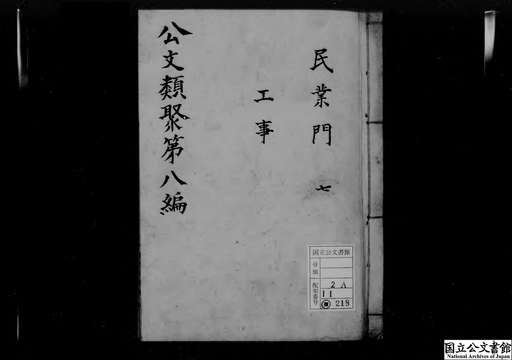 民業門 七
工事
公文類聚第八編
国立公文書館
分類
配架番号
2 A
11
218
国立公文書館
National Archives of Japan